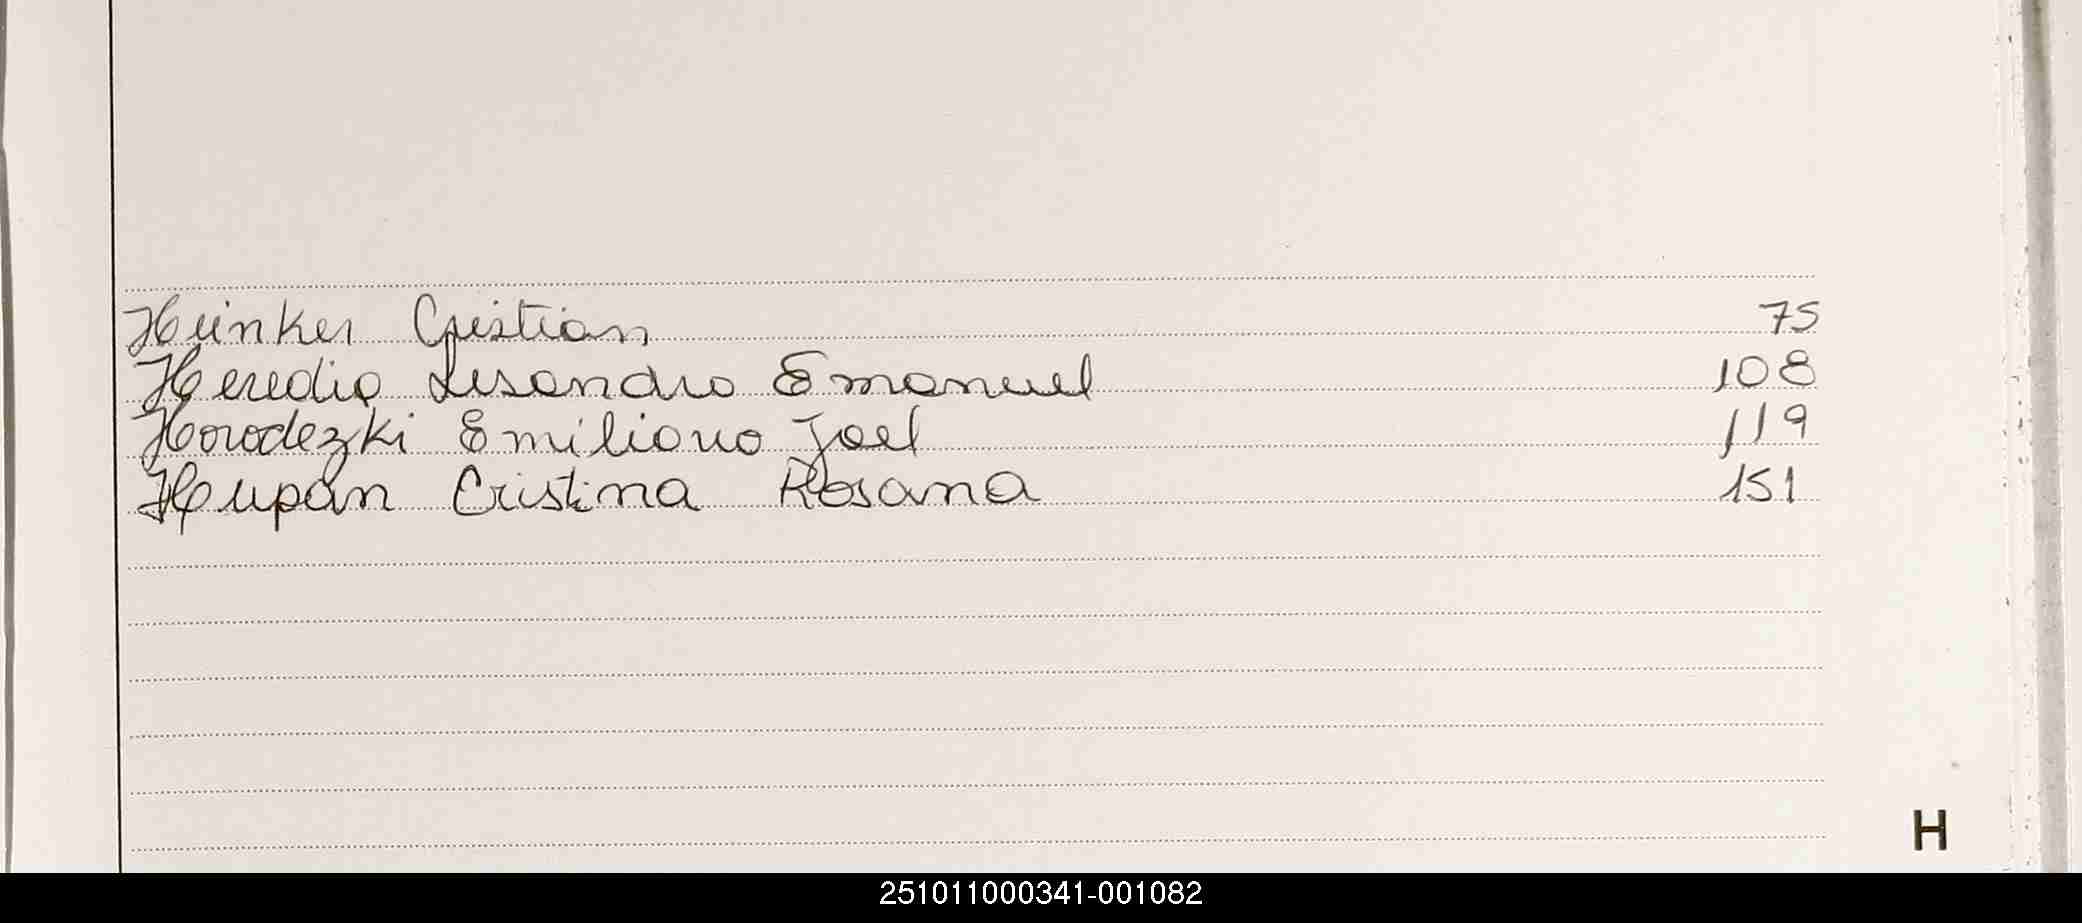 Heinker Cristian 75
Heredia Lisandro Emanuel 108
Horodezki Emiliano Joel 119
Hupan Cristina Rosana 151
H
251011000341-001082